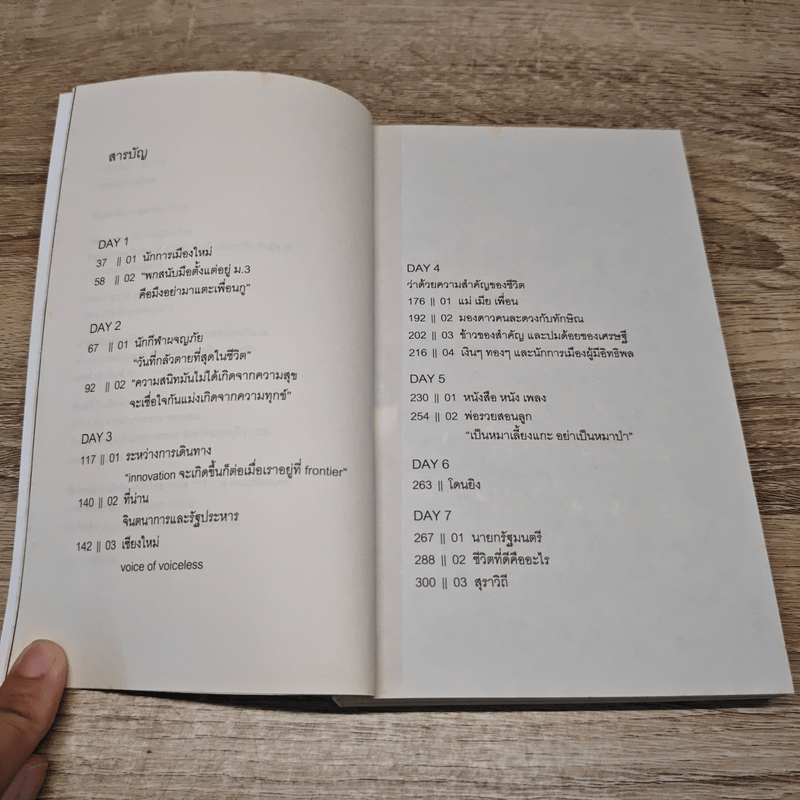 สารบัญ
DAY 1
37 || 01 นักการเมืองใหม่
58 || 02 "พกสนับมือตั้งแต่อยู่ ม.3
คือมึงอย่ามาแตะเพื่อนกู"
DAY 2
67 || 01 นักกีฬาผจญภัย
"วันที่กลัวตายที่สุดในชีวิต"
92 || 02 "ความสนิทมันไม่ได้เกิดจากความสุข
จะเชื่อใจกันแม่งเกิดจากความทุกข์"
DAY 3
117 || 01 ระหว่างการเดินทาง
"innovation จะเกิดขึ้นก็ต่อเมื่อเราอยู่ที่ frontier"
140 || 02 ที่น่าน
จินตนาการและรัฐประหาร
142 || 03 เชียงใหม่
voice of voiceless
DAY 4
ว่าด้วยความสำคัญของชีวิต
176 || 01 แม่ เมีย เพื่อน
192 || 02 มองดาวคนละดวงกับทักษิณ
202 || 03 ข้าวของสำคัญ และปมด้อยของเศรษฐี
216 || 04 เงินๆ ทองๆ และนักการเมืองผู้มีอิทธิพล
DAY 5
230 || 01 หนังสือ หนัง เพลง
254 || 02 พ่อรวยสอนลูก
"เป็นหมาเลี้ยงแกะ อย่าเป็นหมาป่า"
DAY 6
263 || โดนยิง
DAY 7
267 || 01 นายกรัฐมนตรี
288 || 02 ชีวิตที่ดีคืออะไร
300 || 03 สุราวิถี